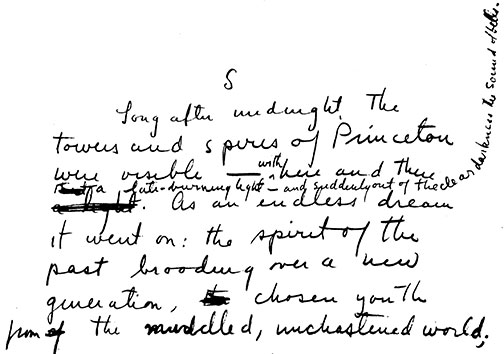 S
Long after midnight the
towers and spires of Princeton
were visible — with here and there
a late-burning light — and suddenly out of the clear darkness the sound of bells.
As an endless dream
it went on: the spirit of the
past brooding over a new
generation, chosen youth
from the muddled, unchastened world,